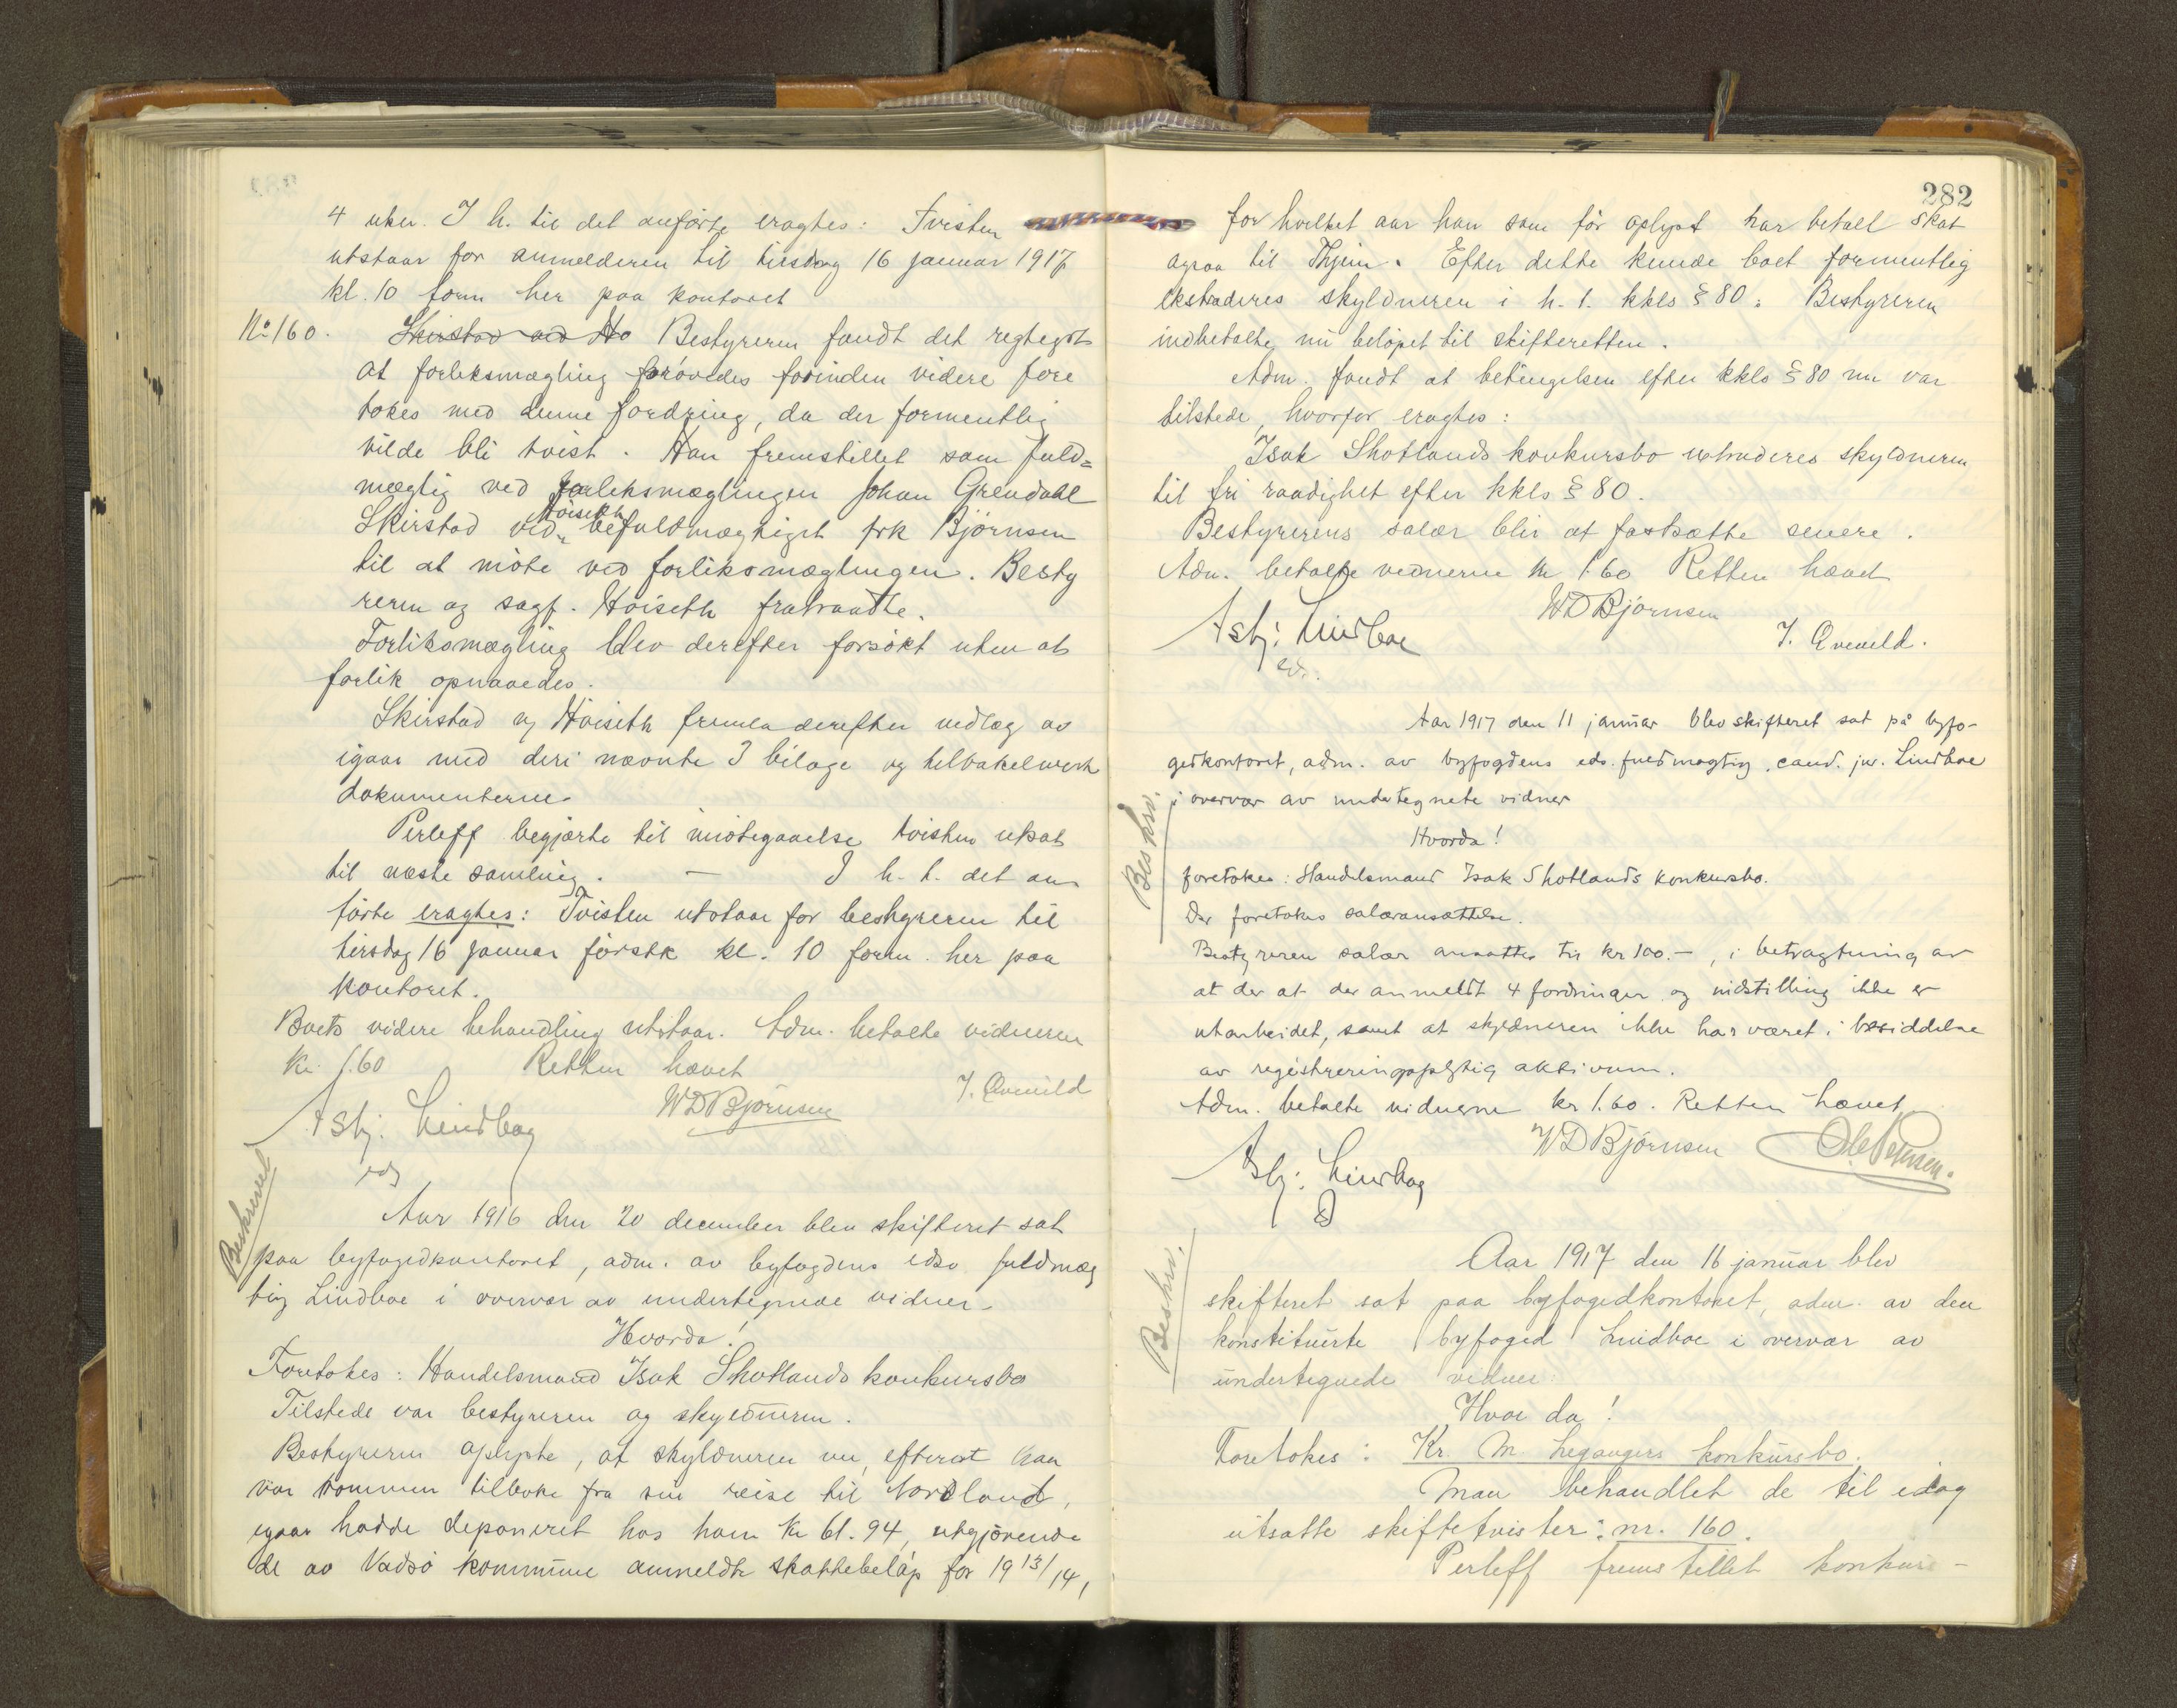 4 uker. I h. til det anførte eragtes: Tvisten
utstaar for anmelderen til tirsdag 16 januar 1917
kl. 10 form her paa kontoret
No 160. Skirstad ved Hø Bestyreren fandt det regtegst
at forliksmægling prøvedes forinden videre fore
tokes med denne fordring, da der formentlig
vilde bli tvist. Han fremstillet som fuld=
mægtig ved forliksmæglingen Johan Grendahl
Skirstad ved Høiseth befuldmægtiget frk Bjørnsen
til at møte ved forliksmæglingen. Besty
reren og sagf. Høiseth fratraadte.
Forliksmægling blev derefter forsøkt uten at
forlik opnaaedes.
Skirstad og Høiseth fremla derefter indlæg av
igaar med deri nævnte 3 bilage og tilbakelev
dokumenterne.
Perleff begjærte til imøtegaaelse tvisten utsat
til næste samling. — I h. t. det an
førte eragtes: Tvisten utstaar for bestyreren til
tirsdag 16 januar førstk kl. 10 form. her paa
kontoret.
Boets videre behandling utstaar. Adm. betalte vidnerne
kr. 1.60 Retten hævet
Asbj. Lindboe WD Bjørnsen J. Qvenild
eds
Beskrevet
Aar 1916 den 20 december blev skifteret sat
paa byfogedkontoret, adm. av byfogdens edsv. fuldmæg
tig Lindboe i overvær av undertegnede vidner
Hvorda!
Foretokes: Handelsmand Isak Shotlands konkursbo
Tilstede var bestyreren og skyldneren.
Bestyreren oplyste, at skyldneren nu, efterat han
var kommen tilbake fra sin reise til Nordland,
igaar hadde deponeret hos ham kr 61.94, utgjørende
de av Vadsø kommune anmeldte skattebeløp for 1913/14,
282
for hvilket aar han som før oplyst har betalt skat
ogsaa til Thjem. Efter dette kunde boet formentlig
ekstraderes skyldneren i h. t. kkls § 80. Bestyreren
indbetalte nu beløpet til skifteretten.
Adm. fandt at betingelsen efter kkls § 80 nu var
tilstede, hvorfor eragtes:
Isak Shotlands konkursbo extraderes skyldneren
til fri raadighet efter kkls § 80.
Bestyrerens salær blir at fastsætte senere.
Adm. betalte vidnerne kr 1.60 Retten hævet
Asbj. Lindboe WD Bjørnsen J. Qvenild.
eds.
Aar 1917 den 11 januar blev skifteret sat på byfo-
gedkontoret, adm. av byfogdens eds. fuldmægtig, cand. jur. Lindboe
i overvær av undertegnete vidner
Beskrv.
Hvorda!
foretokes: Handelsmand Isak Shotlands konkursbo.
Der foretokes salæransættelse.
Bestyreren salær ansattes til kr 100.—, i betragtning av
at der at der anmeldt 4 fordringer og indstilling ikke er
utarbeidet, samt at skyldneren ikke har været i besiddelse
av registreringspligtig aktivum.
Adm. betalte vidnerne kr 1.60. Retten hævet
Asbj. Lindboe WD Bjørnsen Ole Petersen.
Beskrv.
Aar 1917 den 16 januar blev
skifteret sat paa byfogedkontoret, adm. av den
konstituerte byfoged Lindboe i overvær av
undertegnede vidner:
Hvor da!
Foretokes: Kr. M. Legangers konkursbo.
Man behandlet de til idag
utsatte skiftetvister: nr. 160.
Perleff fremstillet konkurs-